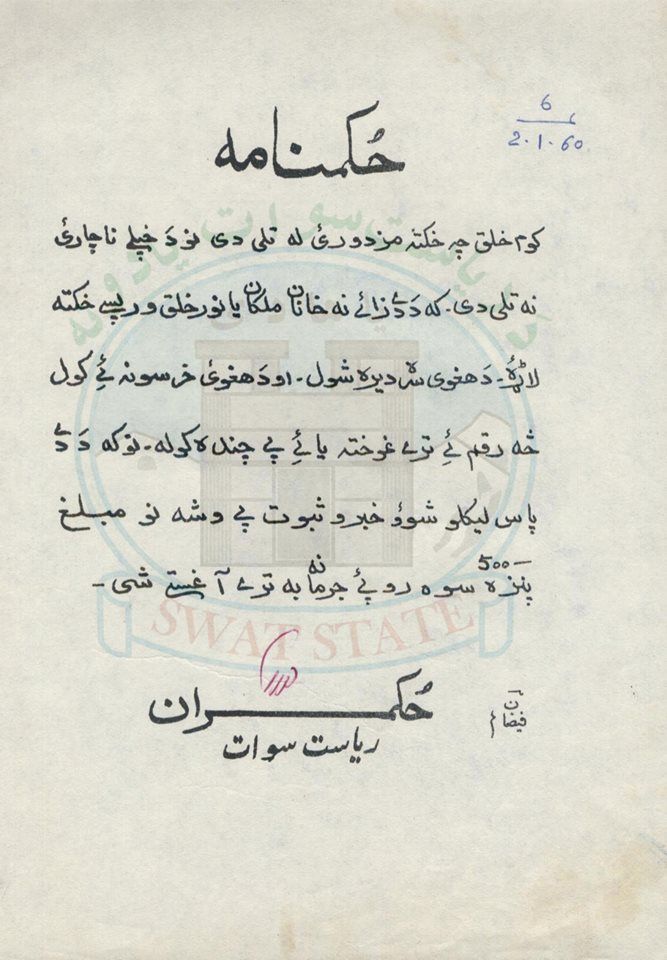 6
2.1.60
حُکمنامه
کوم خلق چه ښکته مزدورئ له تلی دی نو دَ خپلے ناچارئ
نه تلی دی۔ که دَدے زائے نه خانان ملکان یا نور خلق ورپسے ښکته
لاړهٔ۔ دَهغوی ډیره شول۔ او دَهغوئ خرسونه ئے کول
څه رقم ئے ترے غوښته یا ئے پے چنده کوله۔ نو که دَ دے
پاس لیکلو شوؤ خبرو ثبوت پے وشه نو مبلغ
500
پنزهٔ سوه روپئے جرمانه به ترے آغستے شی۔
حُکمران
ریاست سوات
فیضان
SWAT STATE